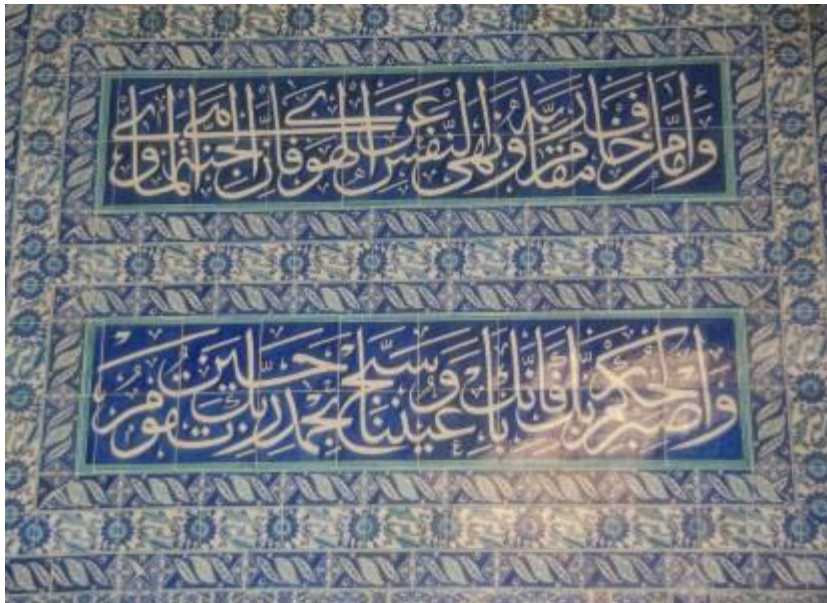 وَأَمَّا مَنْ خَافَ مَقَامَ رَبِّهِ وَنَهَى النَّفْسَ عَنِ الْهَوَى فَإِنَّ الْجَنَّةَ هِيَ الْمَأْوَى
وَاصْبِرْ لِحُكْمِ رَبِّكَ فَإِنَّكَ بِأَعْيُنِنَا وَسَبِّحْ بِحَمْدِ رَبِّكَ حِينَ تَقُومُ